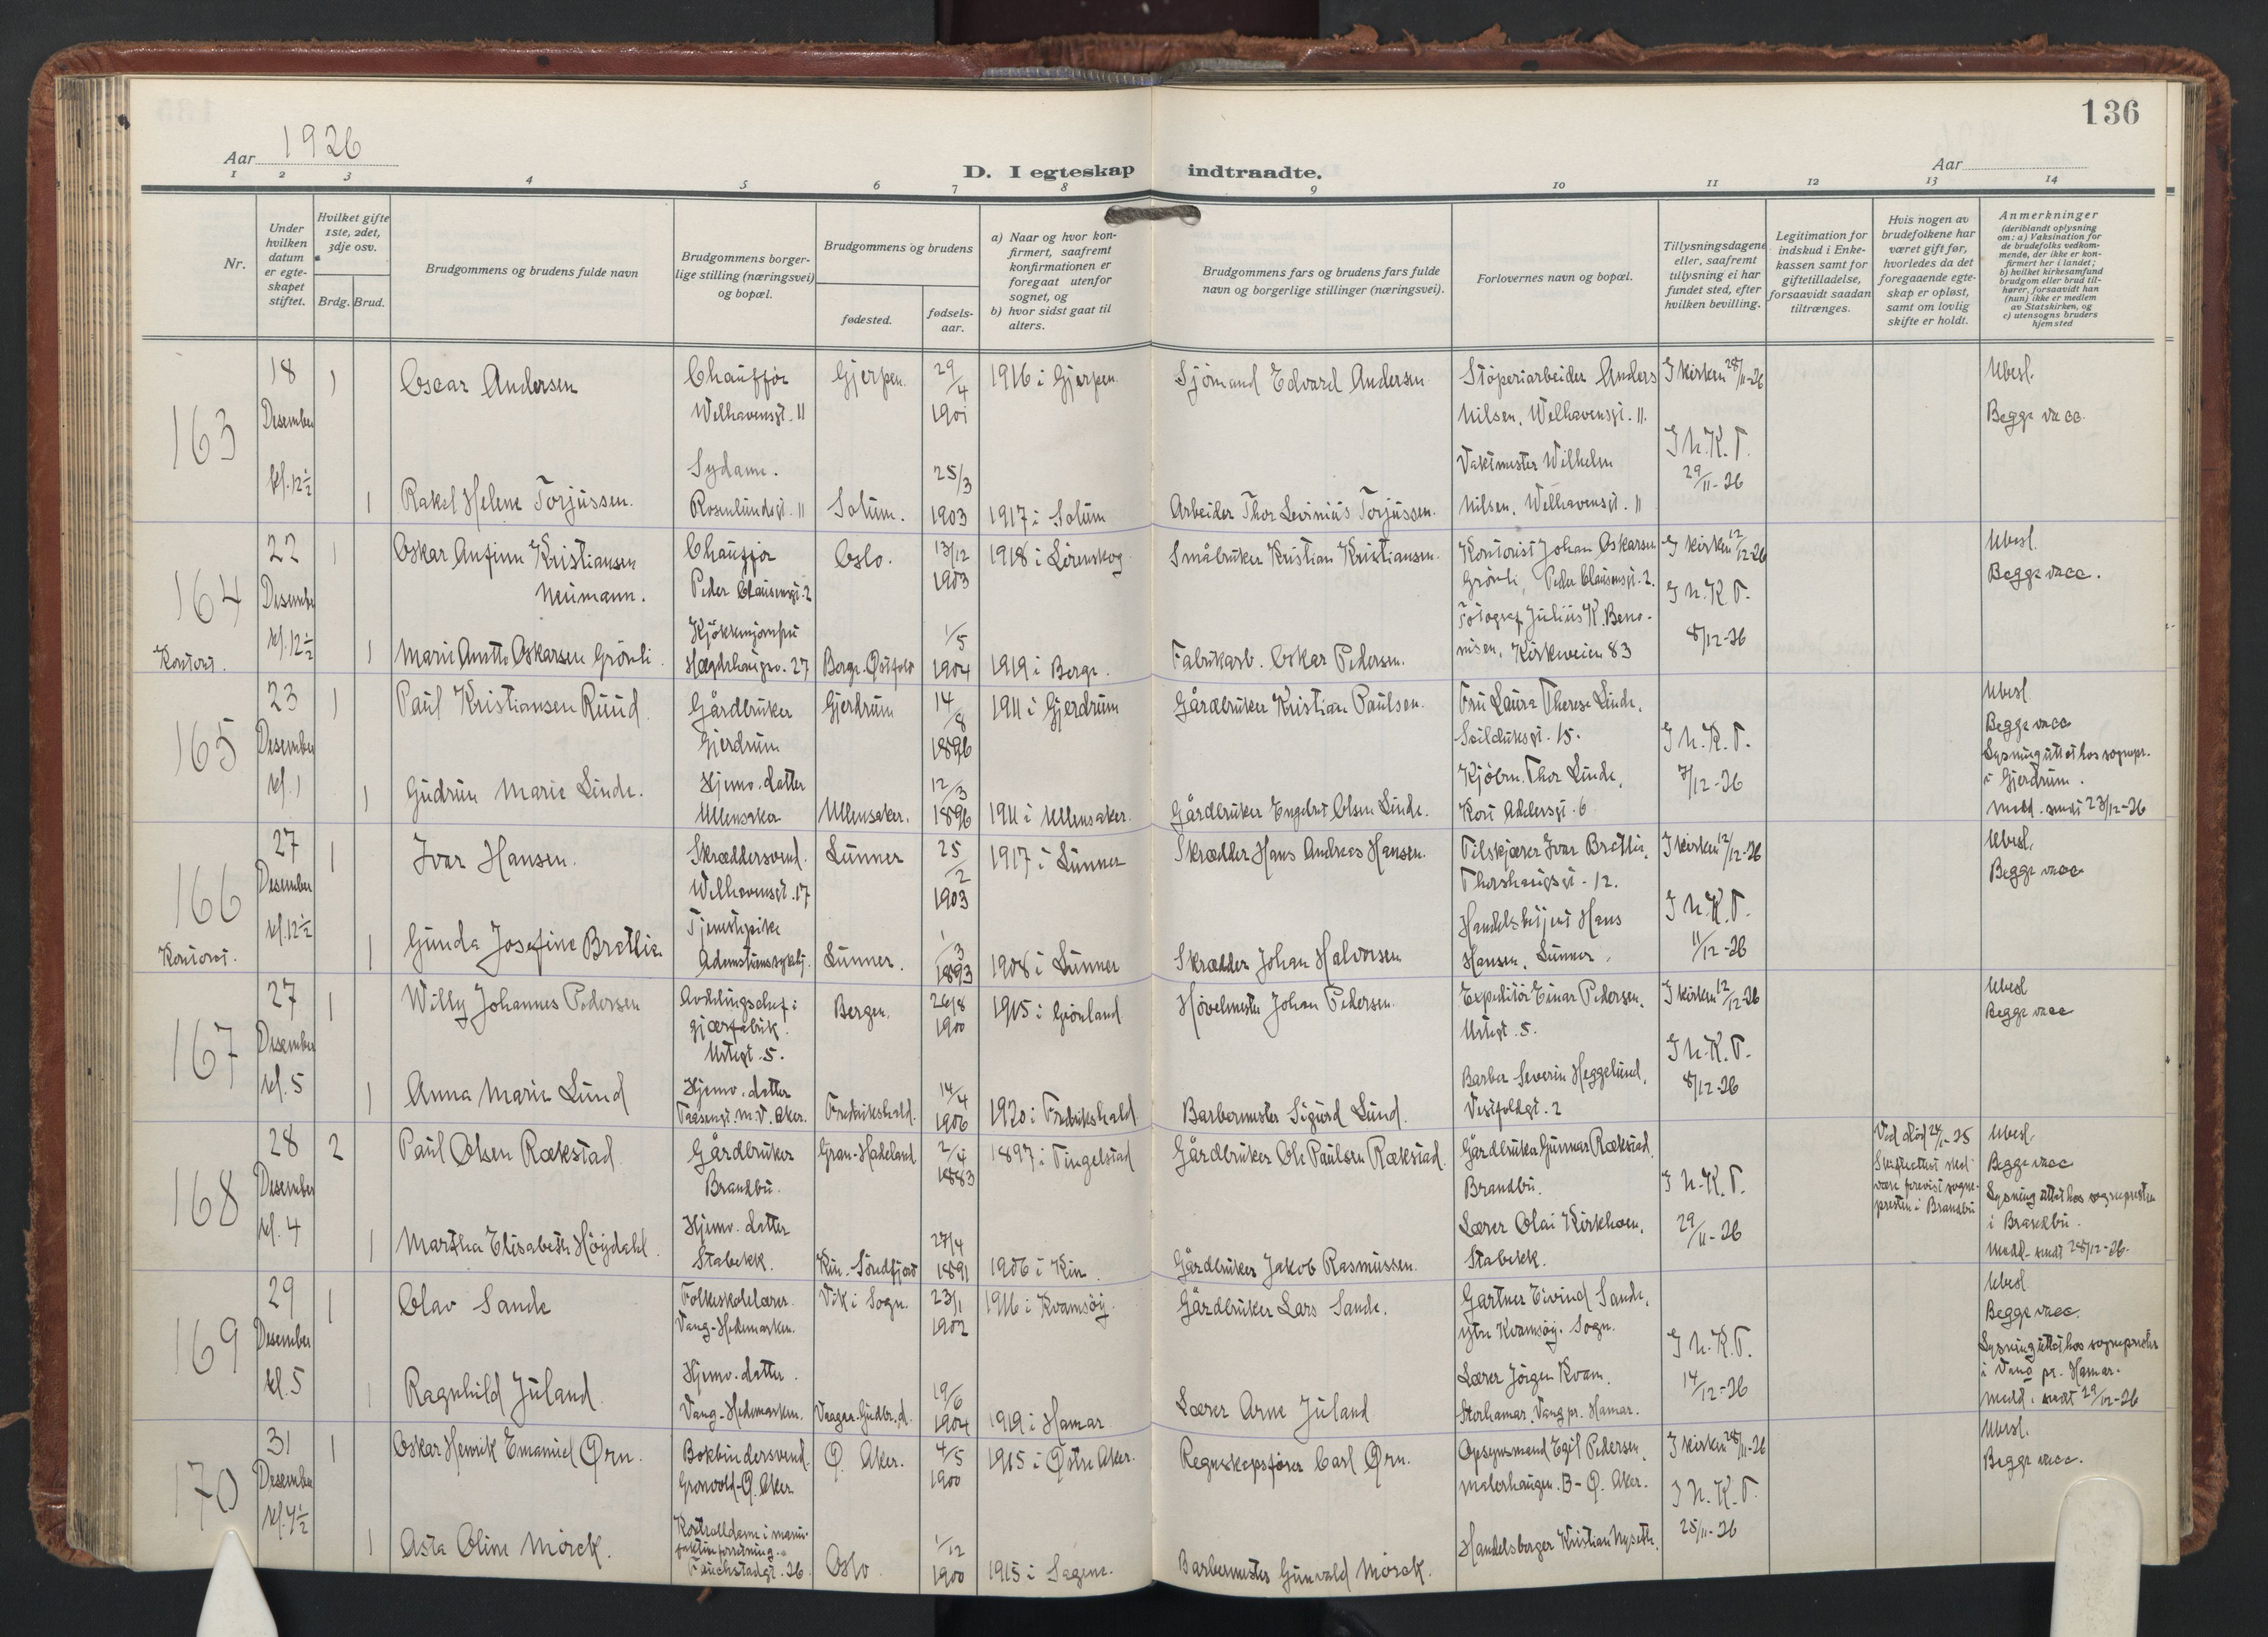 136
Aar 1926
D. I egteskap indtraadte.
Aar
1 2 3 4 5 6 7 8 9 10 11 12 13 14
Nr.
Under hvilken datum er egte-skapet stiftet.
Hvilket gifte 1ste, 2det, 3dje osv.
Brdg. Brud.
Brudgommens og brudens fulde navn
Brudgommens borger-lige stilling (næringsvei) og bopæl.
Brudgommens og brudens
fødested.
fødsels-aar.
a) Naar og hvor kon-firmert, saafremt konfirmationen er foregaat utenfor sognet, og
b) hvor sidst gaat til alters.
Brudgommens fars og brudens fars fulde navn og borgerlige stillinger (næringsvei).
Forlovernes navn og bopæl.
Tillysningsdagene eller, saafremt tillysning ei har fundet sted, efter hvilken bevilling.
Legitimation for indskud i Enke-kassen samt for giftetilladelse, forsaavidt saadan tiltrænges.
Hvis nogen av brudefolkene har været gift før, hvorledes da det foregaaende egte-skap er opløst, samt om lovlig skifte er holdt.
Anmerkninger (deriblandt oplysning om: a) Vaksination for de brudefolks vedkom-mende, der ikke er kon-firmert her i landet; b) hvilket kirkesamfund brudgom eller brud til-hører, forsaavidt han (hun) ikke er medlem av Statskirken, og c) utensogns bruders hjemsted
163
18 Desember kl. 12½
1 Oscar Andersen
Chauffør Welhavensgt. 11
Gjerpen. 29/4 1901
1916 i Gjerpen
Sjömand Edvard Andersen
Stöperiarbeider Anders Nilsen, Welhavensgt. 11.
I kirken 28/11-26
Ubesl.
Begge vacc.
1 Rakel Helene Torjussen.
Sydame. Rosenlundsgt. 11
Solum. 25/3 1903
1917 i Solum
Arbeider Thor Levinius Torjussen.
Vaktmester Wilhelm Nilsen, Welhavensgt. 11
I h. K. T. 29/11-26
164
Kontoret.
22 Desember kl. 12½
1 Oskar Anfinn Kristiansen Neumann.
Chauffør Peder Clausensgt. 2
Oslo. 13/12 1903
1918 i Lörenskog
Småbruker Kristian Kristiansen.
Kontorist Johan Oskarsen Grönli, Peder Clausensgt. 2.
I kirken 12/12-26
Ubesl.
Begge vacc.
1 Marie Anette Oskarsen Grönli
Kjökkenjomfru Hægdehaugsv. 27
Borge Østfold 1/5 1904
1919 i Borge.
Fabrikarb. Oskar Pedersen.
Fotograf Julius K. Beno-nisen, Kirkeveien 83
I h. K. T. 8/12-26
165
23 Desember kl. 1
1 Paul Kristiansen Ruud
Gårdbruker Gjerdrum
Gjerdrum 14/8 1896
1911 i Gjerdrum
Gårdbruker Kristian Paulsen.
Fru Laura Therese Linde, Seilduksgt. 15.
I h. K. T. 7/12-26
Ubesl
Begge vacc
Lysning uttat hos sognepr. i Gjerdrum.
Medd. sendt 23/12-26
1 Gudrun Marie Linde.
Hjemv. datter Ullensaker
Ullensaker. 12/3 1896
1911 i Ullensaker.
Gårdbruker Engebret Olsen Linde.
Kjöbm. Thor Linde, Kort Adelersgt. 6
166
Kontoret.
27 Desember kl. 12½
1 Ivar Hansen.
Skræddersvend. Welhavensgt. 17
Lunner 25/2 1903
1917 i Lunner
Skrædder Hans Andreas Hansen.
Tilskjærer Ivar Bratlie, Thorshaugsgt. 12.
I kirken 12/12-26
Ubesl.
Begge vacc
1 Gunda Josefine Bratlie
Tjenestepike
Lunner. 1/3 1893
1908 i Lunner
Skrædder Johan Halvorsen
Handelsbetjent Hans Hansen, Lunner.
I h. K. T. 11/12-26
167
27 Desember kl. 5
1 Willy Johannes Pedersen
Avdelingschef i gjærfabrik. Urtegt. 5.
Bergen. 26/8 1900
1915 i Grönland
Hövelmester Johan Pedersen.
Expeditör Einar Pedersen, Urtegt. 5.
I kirken 12/12-26
Ubesl
Begge vacc
1 Anna Marie Lund
Hjemv. datter Taasengt. m. V. Aker.
Fredrikshald. 14/4 1906
1920 i Fredrikshald
Barbermester Sigurd Lund.
Barber Severin Heggelund, Vestfoldgt. 2
I h. K. T. 8/12-26
168
28 Desember kl. 4
2 Paul Olsen Rækstad
Gårdbruker Brandbu.
Gran-Hadeland 2/4 1883
1897 i Tingelstad
Gårdbruker Ole Paulsen Rækstad.
Gårdbruker Gunnar Rækstad, Brandbu.
I h. K. T. 29/11-26
Ved död 24/1-25 Skifteattest sked være forevist sogne-presten i Brandbu
Ubesl.
Begge vacc
Lysning uttat hos sognepresten i Brandbu.
Medd. sendt 28/12-26.
1 Martha Elisabeth Höydahl.
Hjemv. datter Stabekk.
Kin-Söndfjord 27/4 1891
1906 i Kin.
Gårdbruker Jakob Rasmussen.
Lærer Olai Kirkhoen, Stabekk.
169
29 Desember kl. 5
1 Olav Sande
Folkeskolelærer. Vang-Hedemarken.
Vik i Sogn. 23/1 1902
1916 i Kvamsöy.
Gårdbruker Lars Sande.
Gartner Eivind Sande, ytre Kvamsöy. Sogn.
I h. K. T. 14/12-26
Ubesl
Begge vacc.
Lysning uttat hos sognepresten i Vang pr. Hamar.
Medd. sendt 29/12-26
1 Ragnhild Juland
Hjemv. datter. Vang-Hedemarken.
Vaage-Gudbr.d. 19/6 1904
1919 i Hamar
Lærer Arne Juland
Lærer Jörgen Kvam. Storhamar, Vang pr. Hamar.
170
31 Desember kl. 4½
1 Oskar Henrik Emanuel Ørn.
Bokbindersvend. Grönvold-Ø. Aker
Ø. Aker. 4/5 1900
1915 i Østre Aker.
Regnskapsfører Carl Ørn.
Opsynsmand Egil Pedersen, Malerhaugen. B-Ø. Aker.
I kirken 28/11-26
Ubesl.
Begge vacc.
1 Asta Oline Mörck.
Kontrolldame i manu-fakturforretning. Fauchaldsgt. 26
Oslo 1/12 1900
1915 i Sagene.
Barbermester Gunvald Mörck.
Handelsborger Kristian Nyseth.
I h. K. T. 25/11-26